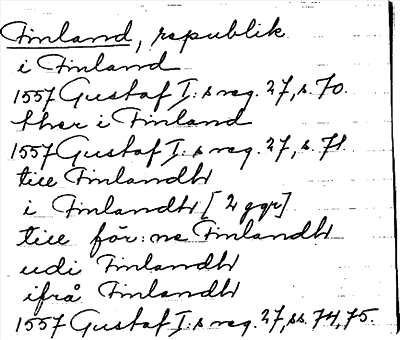 Finland, republik
i Finland
1557 Gustaf I:s reg. 27, s. 70.
ther i Finland
1557 Gustaf I:s reg. 27, s. 71.
till Finlandh
i Finlandh [2 ggr]
till för:ne Finlandh
udi Finlandh
ifrå Finlandh
1557 Gustaf I:s reg. 27, ss. 74, 75.